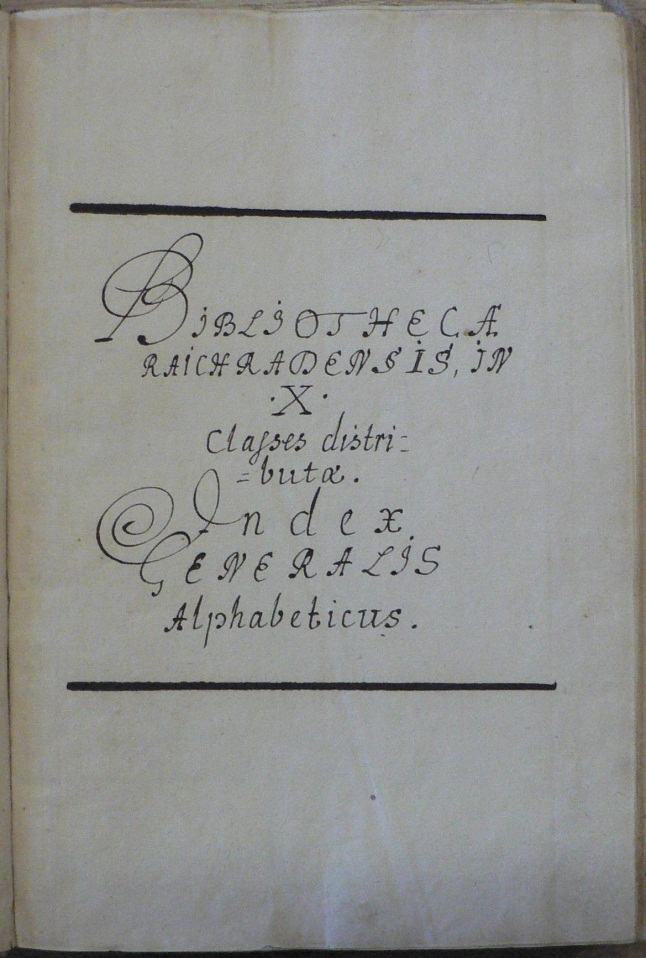 BIBLIOTHECÆ
RAICHRADENSIS, IN
·X·
Classes distri=
=butæ.
Index
GENERALIS
Alphabeticus.